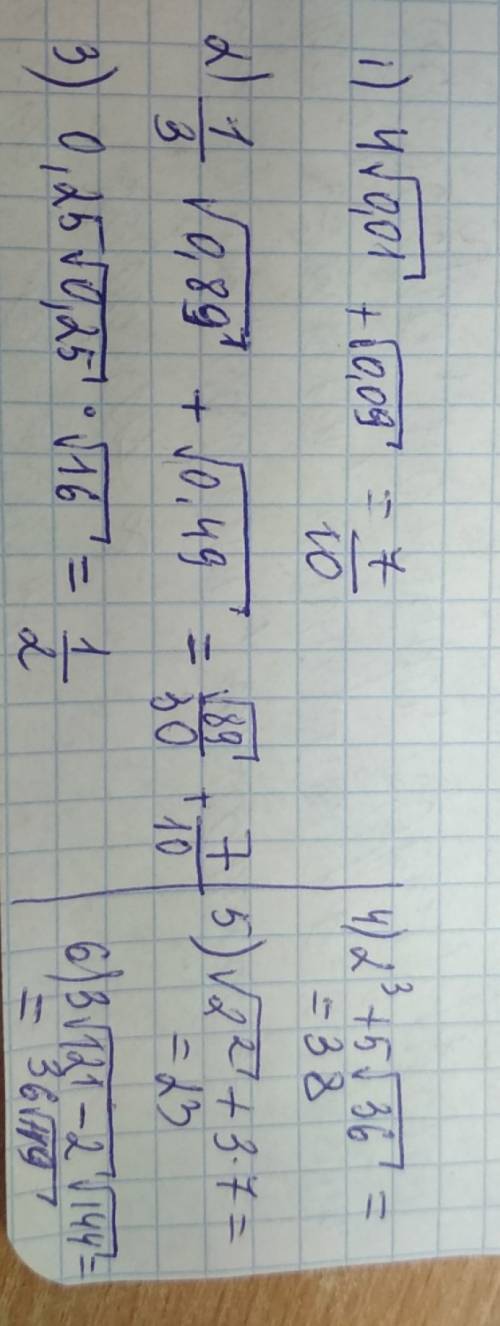 1) 4√0,01 + √0,09 = 7/10
2) 1/3 √0,89 + √0,49 = √89/30 + 7/10
3) 0,25√0,25 · √16 = 1/2
4) 2³ + 5√36 =
= 38
5) √2² + 3·7 =
= 23
6) 3√121 - 2√144 =
= 36√119